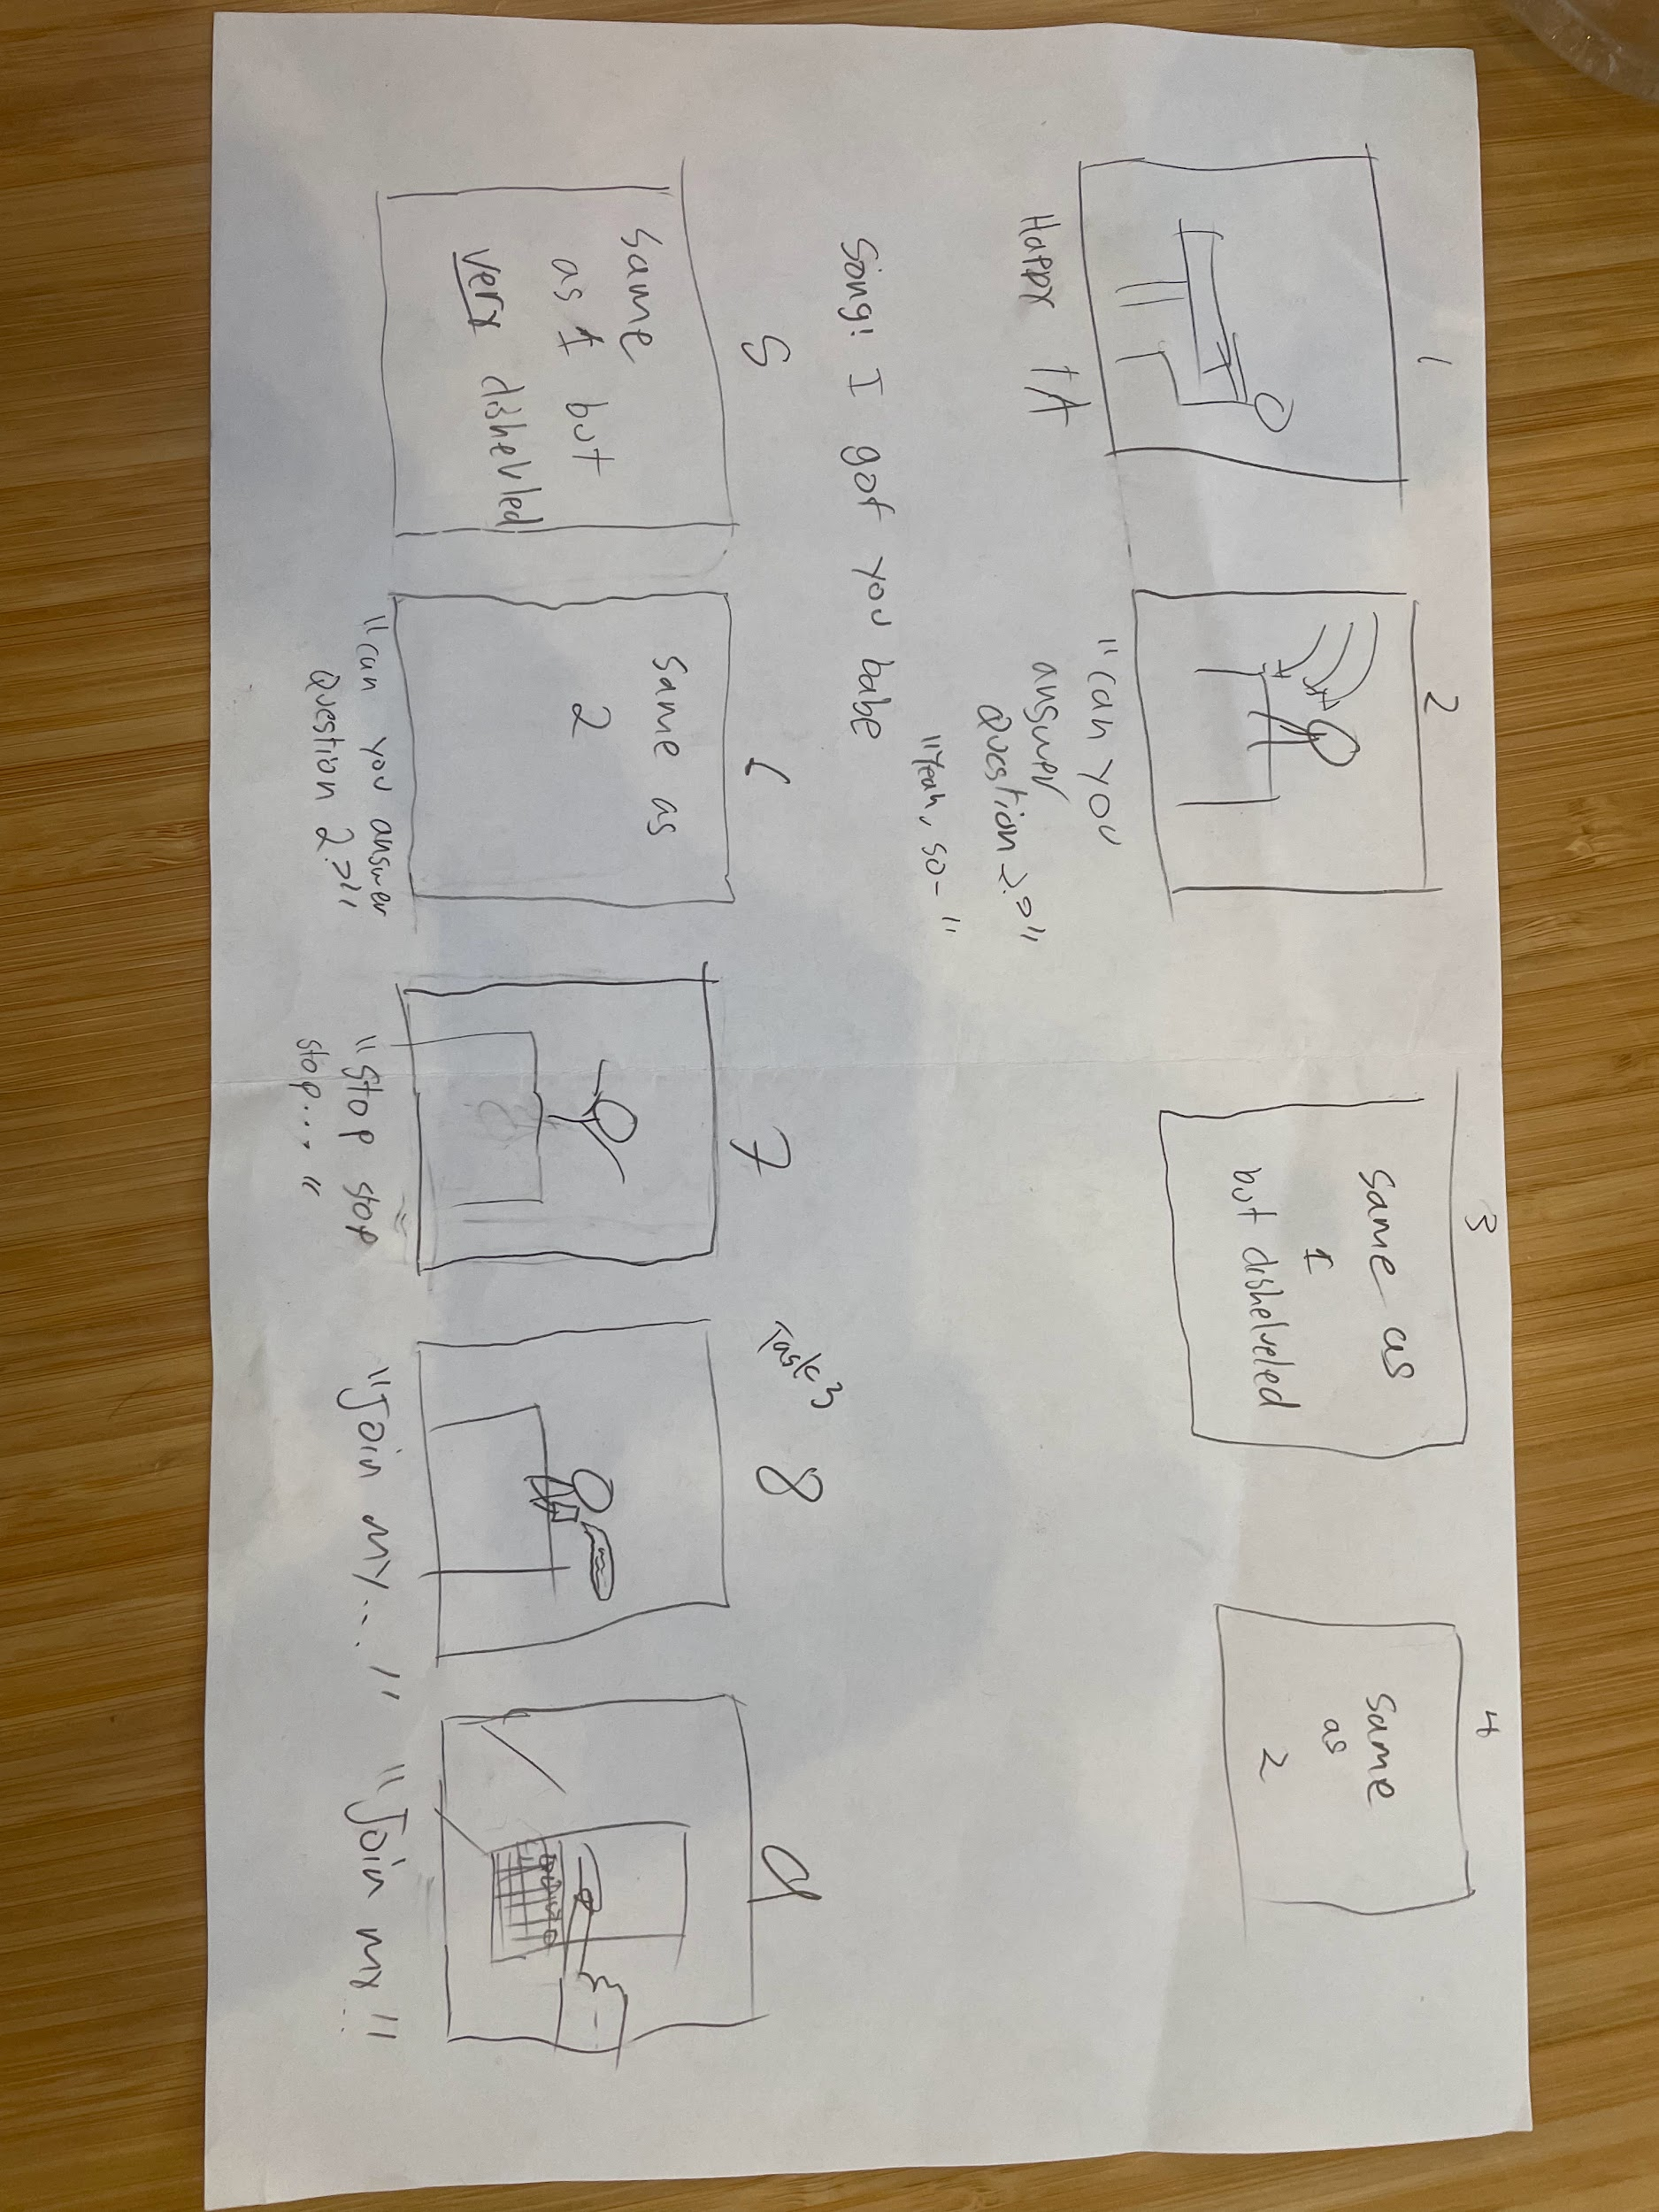 1
Happy TA
2
"can you
answer
Question 2?"
"Yeah, so-"
3
same as
1
but dishelveled
4
same
as
2
Song: I got you babe
5
same
as 1 but
very dishevled
6
same as
2
"can you answer
Question 2?"
7
"Stop stop
stop...."
Task 3
8
"Join my..."
9
"Join my..."